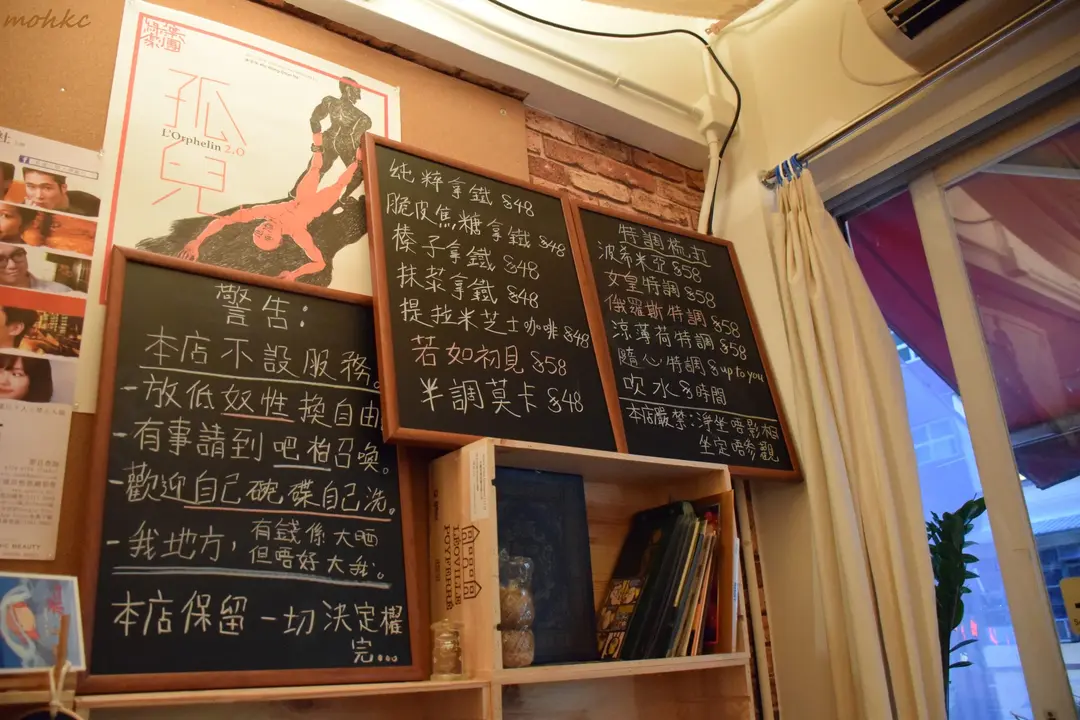 mohkc
孤
兒
L'Orphelin 2.0
警告:
本店不設服務。
-放低奴性換自由
-有事請到吧枱召喚。
-歡迎自己碗碟自己洗。
-我地方,有錢係大晒
但唔好大我。
本店保留一切決定權
完...
純粹拿鐵 $48
脆皮焦糖拿鐵 $48
榛子拿鐵 $48
抹茶拿鐵 $48
提拉米芝士咖啡 $48
若如初見 $58
半調莫卡 $48
特調梳打
波希米亞 $58
女皇特調 $58
俄羅斯特調 $58
涼薄荷特調 $58
隨心特調 $ up to you
吹水 $ 時間
本店嚴禁:淨坐唔影相
坐定唔參觀
LEOVILLE
POYFERRE